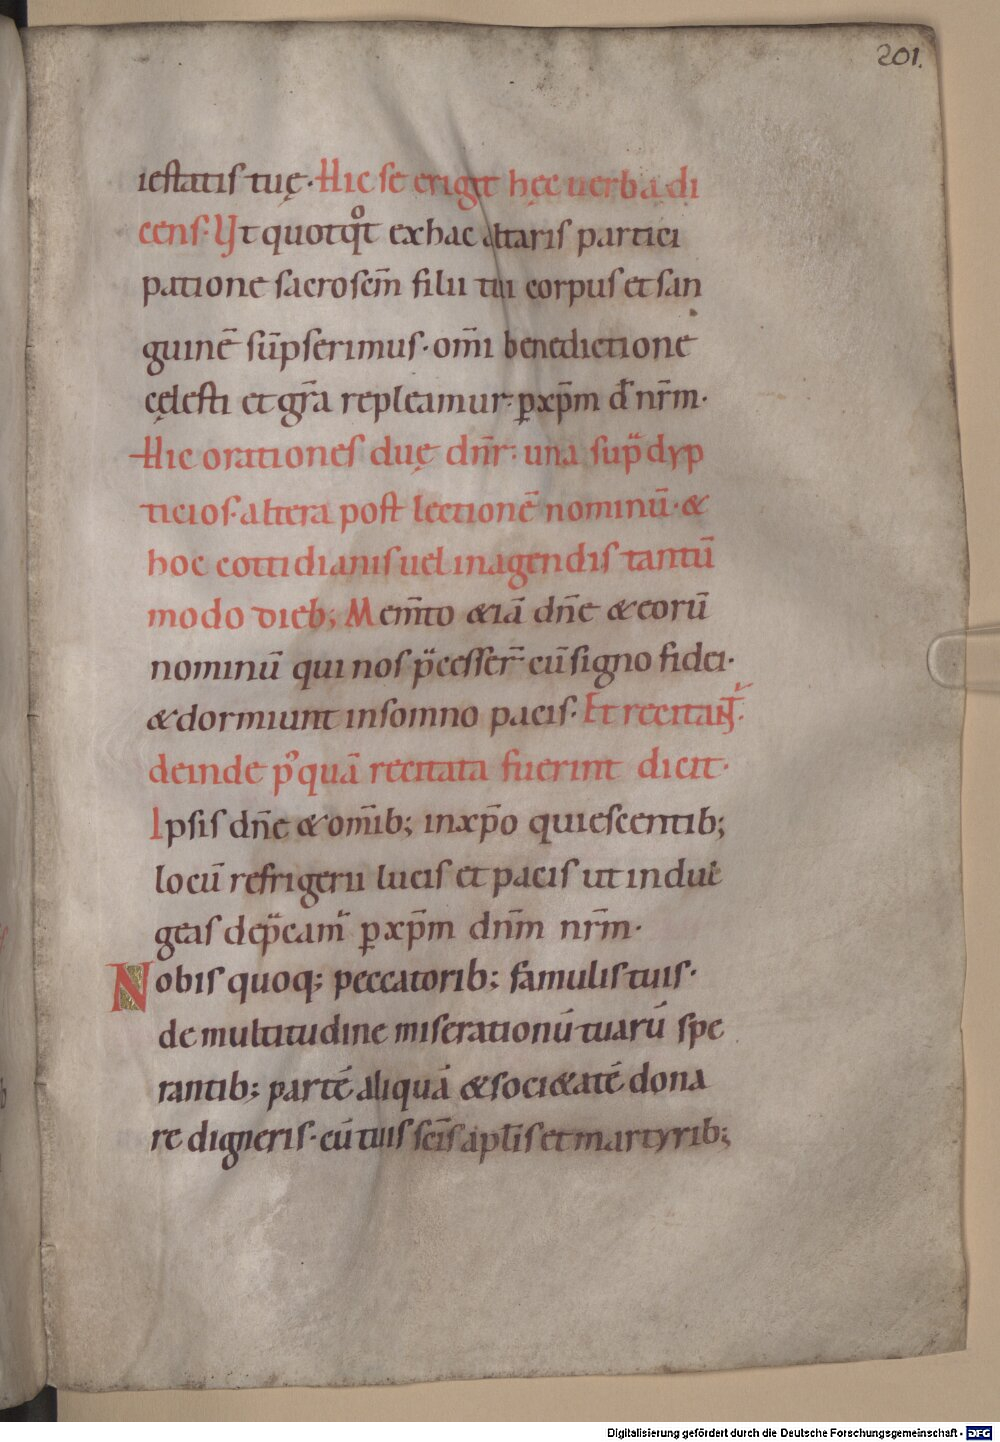 201.
iestatis tuę. Hic se erigit hęc uerba di
cens. Ut quotqͦt ex hac altaris partici
patione sacrosc̄m filii tui corpus et san
guinē sūpserimus. om̄i benedictione
cęlesti et gr̄a repleamur. ꝑ xp̄m dn̄ nr̄m.
Hic orationes duę dn̄r: una sup̄ dyp
ticios. altera post lectionē nominū. &
hoc cottidianis uel in agendis tantū
modo dieb; Mem̄to &iā dn̄e & eorū
nominū qui nos p̄cesser̄ cū signo fidei.
& dormiunt in somno pacis. Et recitant̄.
deinde p᷒quā recitata fuerint dicit.
Ipsis dn̄e & om̄ib; in xp̄o quiescentib;
locū refrigerii lucis et pacis ut indul
geas dep̄cam̄ ꝑ xp̄m dn̄m nr̄m.
Nobis quoq; peccatorib; famulis tuis.
de multitudine miserationū tuarū spe
rantib; partē aliquā & soci&atē dona
re digneris. cū tuis sc̄is ap̄lis et martyrib;
Digitalisierung gefördert durch die Deutsche Forschungsgemeinschaft - DFG